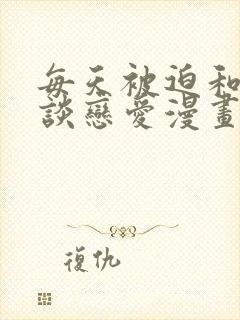 每天被迫和
談戀愛漫畫
復仇